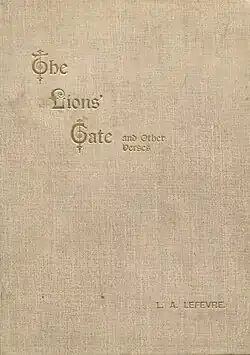 The
Lions'
Gate and Other
Verses
L. A. LEFEVRE.